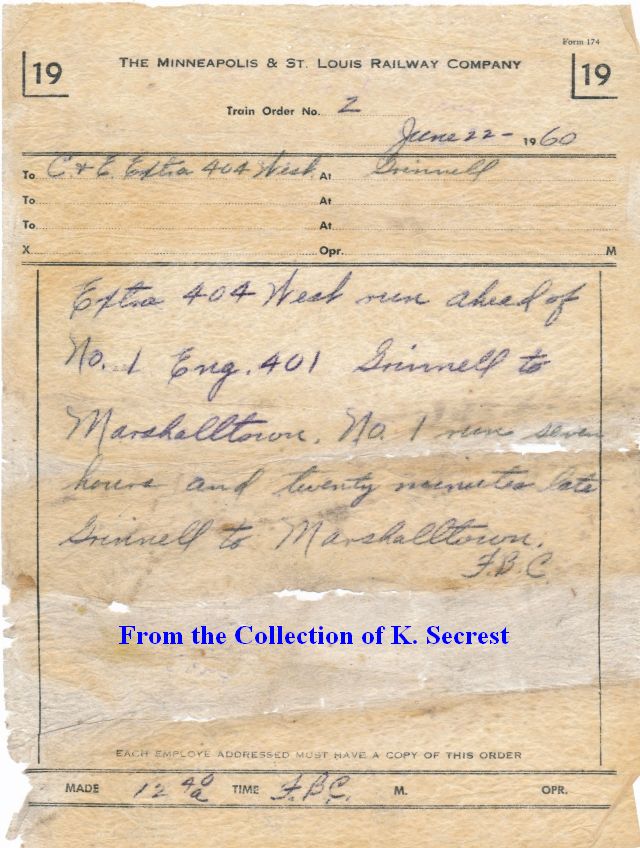 Form 174
19 THE MINNEAPOLIS & ST. LOUIS RAILWAY COMPANY 19
Train Order No. 2
June 22 - 1960
To C. & E. Extra 404 West At Grinnell
To At
To At
X Opr. M
Extra 404 West run ahead of
No. 1 Eng. 401 Grinnell to
Marshalltown. No. 1 run seven
hours and twenty minutes late
Grinnell to Marshalltown.
F.B.C.
From the Collection of K. Secrest
EACH EMPLOYE ADDRESSED MUST HAVE A COPY OF THIS ORDER
MADE 12 40 a TIME F.B.C. M. OPR.